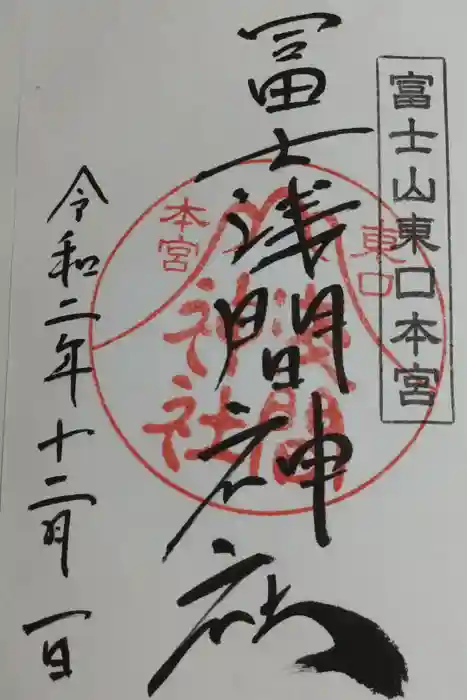 富士山東口本宮
冨士浅間神社
令和二年十二月一日
東口
本宮
浅間
神社